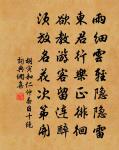 雨細雲輕隱隱雷
東君行樂正徘徊
欲教游客留連醉
須放名花次第開
胡寅和仁仲春日十絕
詞典網集